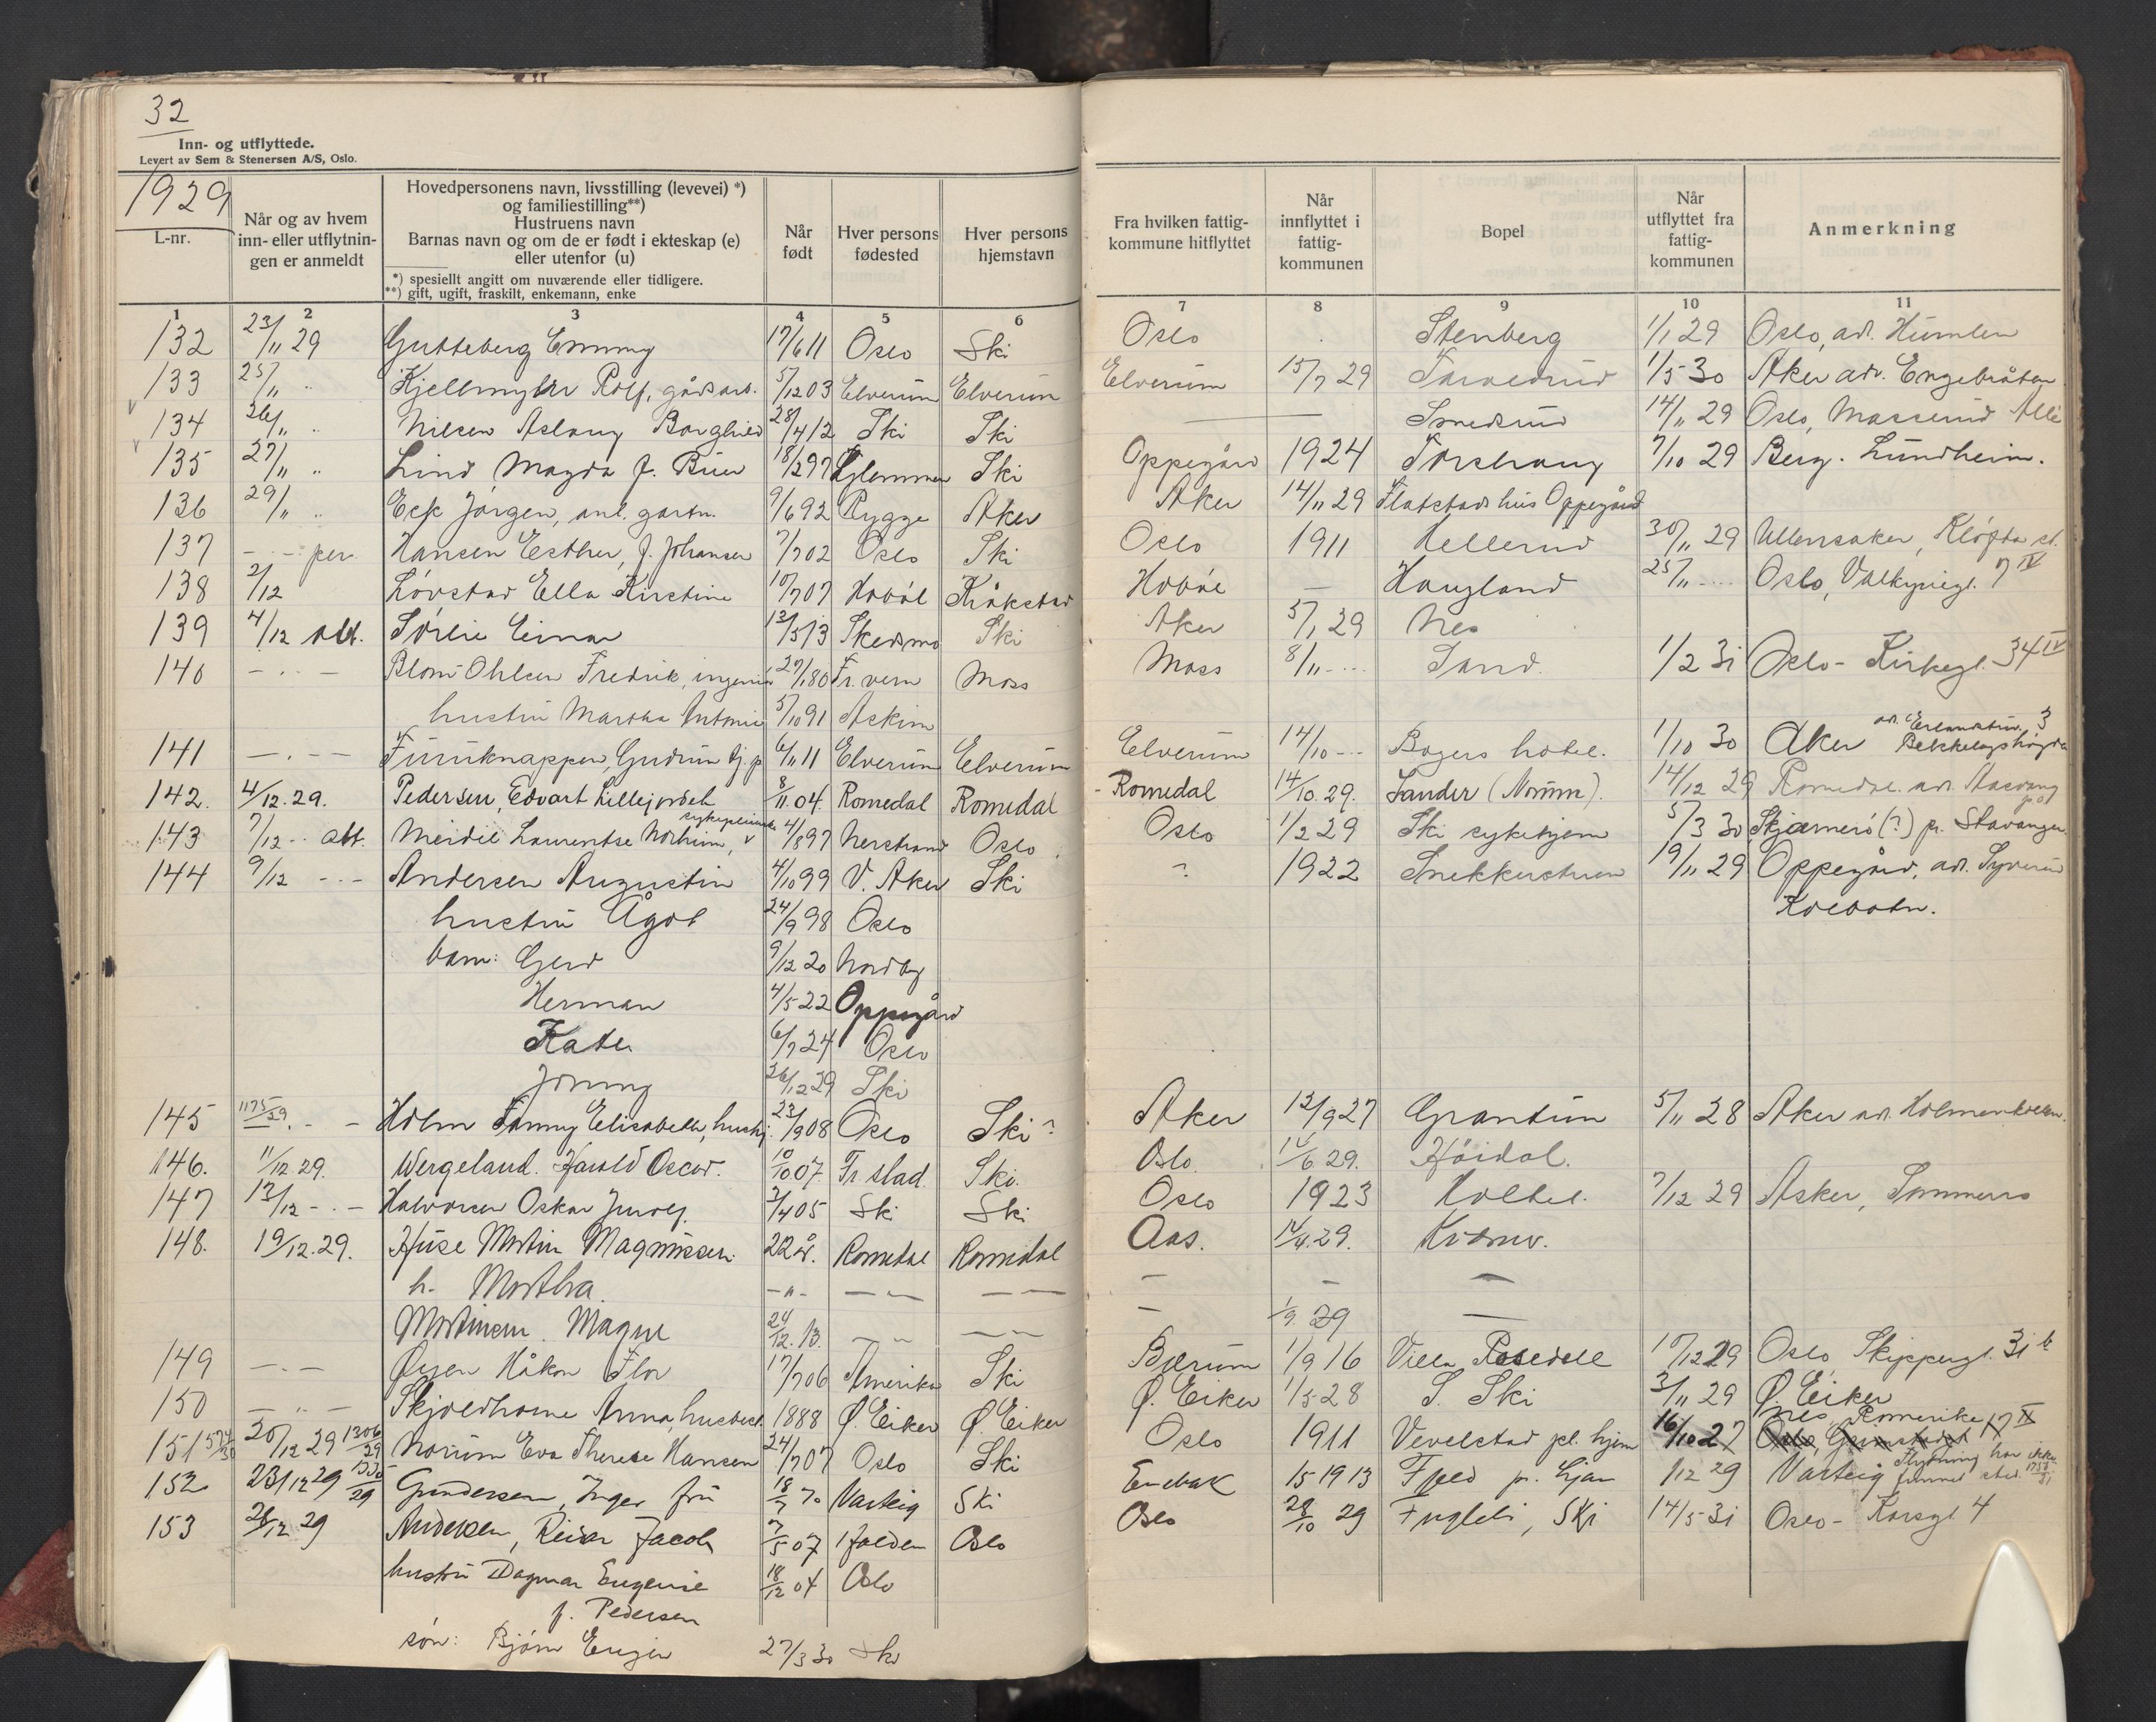 32
Inn- og utflyttede.
Levert av Sem & Stenersen A/S, Oslo.
1929
L-nr.
Når og av hvem inn- eller utflytnin- gen er anmeldt
Hovedpersonens navn, livsstilling (levevei) *) og familiestilling**)
Hustruens navn
Barnas navn og om de er født i ekteskap (e) eller utenfor (u)
*) spesiellt angitt om nuværende eller tidligere.
**) gift, ugift, fraskilt, enkemann, enke
Når født
Hver persons fødested
Hver persons hjemstavn
Fra hvilken fattig- kommune hitflyttet
Når innflyttet i fattig- kommunen
Bopel
Når utflyttet fra fattig- kommunen
Anmerkning
1 2 3 4 5 6 7 8 9 10 11
132 23/11 29 Gutteberg Emmy 17/6 11 Oslo Ski Oslo Stenberg 1/1 29 Oslo, adr. Humlen
133 25/11 " Kjellmyhr Rolf, gårdsarb. 5/12 03 Elverum Elverum Elverum 15/7 29 1/5 30 Aker adr. Engebråten
134 26/11 " Nilsen Aslaug Borghild 28/4 12 Ski Ski — Smedsrud 14/11 29 Oslo, Masserud Alle
135 27/11 " Lind Magda f. Buer 18/2 97 Glemmen Ski Oppegård 1924 Torshaug 7/10 29 Berg. Lundheim.
136 29/11 " Eck Jørgen, anl. gartn. 9/6 92 Rygge Aker Aker 14/11 29 Flatstads hus Oppegård
137 - " - per. Hansen Esther, f. Johansen 7/7 02 Oslo Ski Oslo 1911 Hellerud 30/11 29 Ullensaker, Kløfta st.
138 2/12 Løvstad Ella Kirstine 10/7 07 Hobøl Kråkstad Hobøl — Haugland 25/11 " Oslo, Valkyriegt. 7 IV
139 4/12 att. Sørlie Einar 13/5 13 Skedsmo Ski Aker 5/1 29 Nes
140 - " - Blom Ohlsen Fredrik, ingeniør 27/1 80 Fr.vern Moss Moss 8/11 " Sand. 1/2 31 Oslo - Kirkegt. 34 IV
hustru Martha Antonie 5/10 91 Askim
141 - " - Furuknappen, Gudrun tj.p. 6/11 11 Elverum Elverum Elverum 14/10 " Bogers hotel. 1/10 30 Aker adr. 3 Bekkelagshøgda
142. 4/12.29. Pedersen, Edvart Lillejordet 8/11.04. Romedal Romedal Romedal 14/10.29. Sander (Norum). 14/12 29 Romedal adr. Aasvang p.å
143 7/12 " att. Meidell Laurentse Norheim, sykepleierske 4/8 97 Nerstrand Oslo Oslo 1/2 29 Ski sykehjem 5/3 30 Skjærnerø (?) pr. Stavanger
144 9/12 - " - Andersen Augustin 4/10 99 V. Aker Ski ? 1922 Snekkerstuen 19/11 29 Oppegård, adr. Kolbotn.
hustru Ågot 24/9 98 Oslo
barn: Gerd 9/12 20 Nordby
Herman 4/5 22 Oppegård
Kate 6/7 24 Oslo
26/12 29 Ski
145 1175/29. - - Holm Fanny Elisabeth, hushj. 23/9 08 Oslo Ski ? Aker 13/9 27 Grantun 5/11 28 Aker adr. Holmenkollen
146. 11/12 29. Wergeland. Harald Oscar. 10/10 07. Fr.stad. Ski. Oslo. 14/6.29. Høidal.
147 13/12 - " - Halvorsen Oskar 3/4 05 Ski Ski Oslo 1923 Holtet. 7/12 29 Asker, Sommerro
148. 19/12.29. Huse Martin Magnussen. 22 år. Romedal Romedal Aas. 14/4.29.
h. Martha. - " - — —
Martinsen. Magne 24/12.13. — — 1/9 29 —
149 - " - Øysen Håkon Flor 17/7 06 Amerika Ski Bærum 1/9 16 Villa Rosedell 10/12 29 Oslo, Skippergt. 31 b
150 - " - Anna, husbest. 1888 Ø. Eiker Ø. Eiker Ø. Eiker 1/5 28 S. Ski 3/11 29 Ø. Eiker
151 574/30 20/12 29 1306/29 Norum Eva Therese Hansen 24/7 07 Oslo Ski Oslo 1911 Vevelstad pl. hjem 16/10 27 Nes, Romerike 17 II
152 23/12 29 1335/29 Gundersen, Inger fru 18/7 70 Varteig Ski Enebak 15 1913 Fjeld p. Ljan 1/12 29 Varteig Flytning har ikke funnet sted 1758/31
153 28/12 29 Andersen, Reidar Jacob 7/5 07 Idd Oslo Oslo 28/10 29 Fugleli, Ski 14/5 31 Oslo - Korsgt. 4
hustru Dagmar Eugenie f. Pedersen 18/12 04 Oslo
søn: Bjørn 27/3 30 Ski